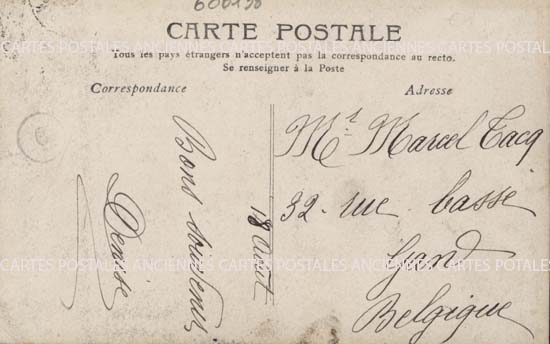 606198
CARTE POSTALE
Tous les pays étrangers n'acceptent pas la correspondance au recto.
Se renseigner à la Poste
Correspondance
Adresse
Bons souvenirs
Denise
18 août
Mr. Marcel Tacq
32. rue basse
Gand
Belgique
CARTES POSTALES ANCIENNES CARTES POSTALES ANCIENNES CARTES POSTALES
CARTES POSTALES ANCIENNES CARTES POSTALES ANCIENNES CARTES POTALES